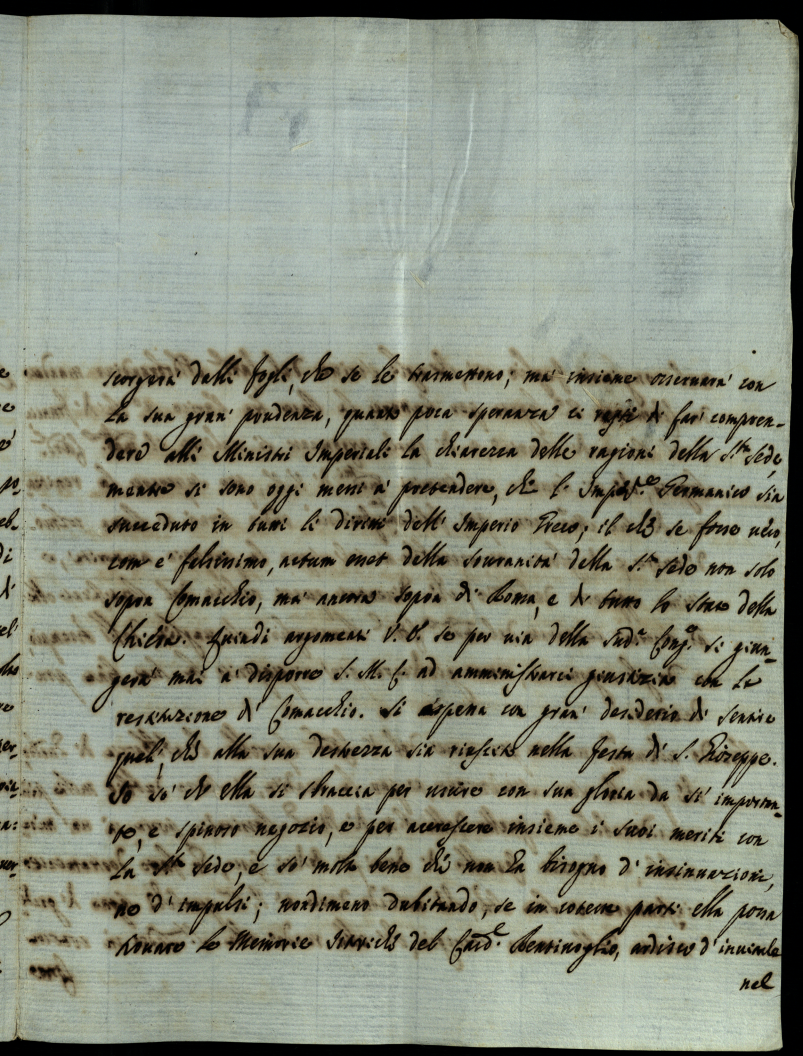 scorgerà dalli fogli, che se le trasmettono; mà insieme osservarà con
la sua gran' prudenza, quanto poca speranza ci resti di far' compren-
dere alli Ministri Imperiali la chiarezza delle ragioni della S.ta Sede,
mentre si sono oggi messi à pretendere, che l' Imp.re Germanico sia
succeduto in tutti li diritti dell' Imperio Greco; il chè se fosse vero,
com' è falsissimo, actum esset della sovranità della S.ta Sede non solo
sopra Comacchio, mà ancora sopra di Roma, e di tutto lo stato della
Chiesa. Quindi argomenti V. S. se per via della sud.a Cong.e si giun-
gerà mai à disporre S. M. C. ad amministrarci giustizia con la
restituzione di Comacchio. Si aspetta con gran' desiderio di sentire
quel, chè alla sua destrezza sia riuscito nella festa di S. Giuseppe.
Io sò che ella si sbraccia per uscire con sua gloria da sì importan-
te, e spinoso negozio, e per accrescere insieme i suoi meriti con
la S.ta Sede, e sò molto bene chè non ha bisogno d' insinuazione,
ne d' impulsi; nondimeno dubitando, se in coteste parti ella possa
trovare le Memorie Storiche del Card.e Bentivoglio, ardisco d' inviarle
nel